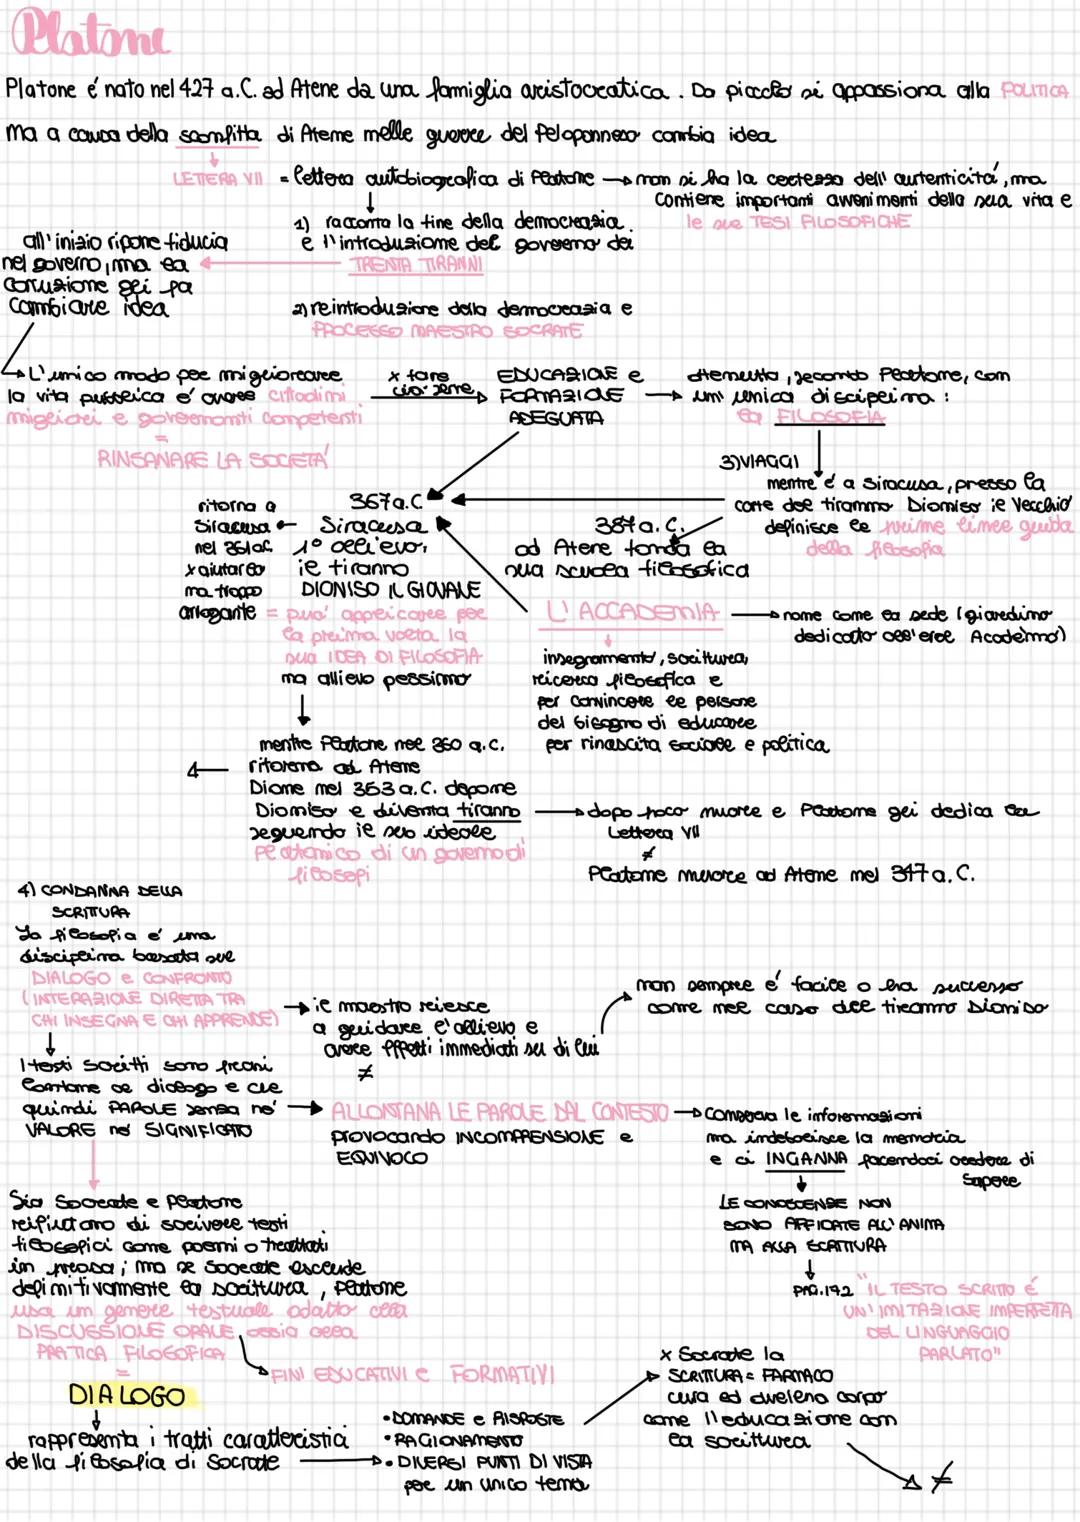 Platone
Platone é nato nel 427 a.C. ad Atene da una famiglia aristocratica. Da piccolo si appassiona alla POLITICA
ma a causa della sconfitta di Atene nelle guerre del Peloponneso cambia idea
LETTERA VII = lettera autobiografica di Platone → non si ha la certezza dell'autenticità, ma
contiene importanti avvenimenti della sua vita e
le sue TESI FILOSOFICHE
1) racconta la fine della democrazia
e l'introduzione del governo dei
TRENTA TIRANNI
all'inizio ripone fiducia
nel governo, ma la
corruzione gli fa
cambiare idea
2) reintroduzione della democrazia e
PROCESSO MAESTRO SOCRATE
L'unico modo per migliorare
la vita pubblica é avere cittadini
migliori e governanti competenti
=
RINSANARE LA SOCIETÀ
x fare
ciò serve
EDUCAZIONE e
FORMAZIONE
ADEGUATA
→ ottenuta, secondo Platone, con
un'unica disciplina:
la FILOSOFIA
3) VIAGGI
mentre é a Siracusa, presso la
corte del tiranno Dionisio il Vecchio
definisce le prime linee guida
della filosofia
387 a.C.
ad Atene fonda la
sua scuola filosofica
L'ACCADEMIA → nome come la sede (giardino
dedicato all'eroe Academo)
insegnamento, scrittura,
ricerca filosofica e
per convincere le persone
del bisogno di educare
per rinascita sociale e politica
367 a.C
Siracusa
1° allievo,
il tiranno
DIONISO IL GIOVANE
= può applicare per
la prima volta la
sua IDEA DI FILOSOFIA
ma allievo pessimo
ritorna a
Siracusa
nel 361 a.C.
x aiutarlo
ma troppo
arrogante
mentre Platone nel 360 a.C.
ritorna ad Atene
Dione nel 353 a.C. depone
Dioniso e diventa tiranno
seguendo il suo ideale
platonico di un governo di
filosofi
→ dopo poco muore e Platone gli dedica la
Lettera VII
≠
Platone muore ad Atene nel 347 a.C.
4) CONDANNA DELLA
SCRITTURA
La filosofia é una
disciplina basata sul
DIALOGO e CONFRONTO
(INTERAZIONE DIRETTA TRA
CHI INSEGNA E CHI APPRENDE)
→ il maestro riesce
a guidare l'allievo e
avere effetti immediati su di lui
≠
non sempre é facile o ha successo
come nel caso del tiranno Dioniso
I testi scritti sono privi
di dialogo e
quindi PAROLE senza né
VALORE né SIGNIFICATO
→ ALLONTANA LE PAROLE DAL CONTESTO
provocando INCOMPRENSIONE e
EQUIVOCO
→ conserva le informazioni
ma indebolisce la memoria
e ci INGANNA facendoci credere di
sapere
LE CONOSCENZE NON
SONO AFFIDATE ALL'ANIMA
MA ALLA SCRITTURA
PAG.142 "IL TESTO SCRITTO É
UN'IMITAZIONE IMPERFETTA
DEL LINGUAGGIO
PARLATO"
Sia Socrate e Platone
rifiutano di scrivere testi
filosofici come poemi o trattati
in prosa; ma se Socrate esclude
definitivamente la scrittura, Platone
usa un genere testuale adatto alla
DISCUSSIONE ORALE, ossia alla
PRATICA FILOSOFICA
=
DIALOGO
FINI EDUCATIVI e FORMATIVI
rappresenta i tratti caratteristici
della filosofia di Socrate
• DOMANDE e RISPOSTE
• RAGIONAMENTO
• DIVERSI PUNTI DI VISTA
per un unico tema
x Socrate la
SCRITTURA = FARMACO
cura ed avvelena corpo
come l'educazione con
la scrittura
≠